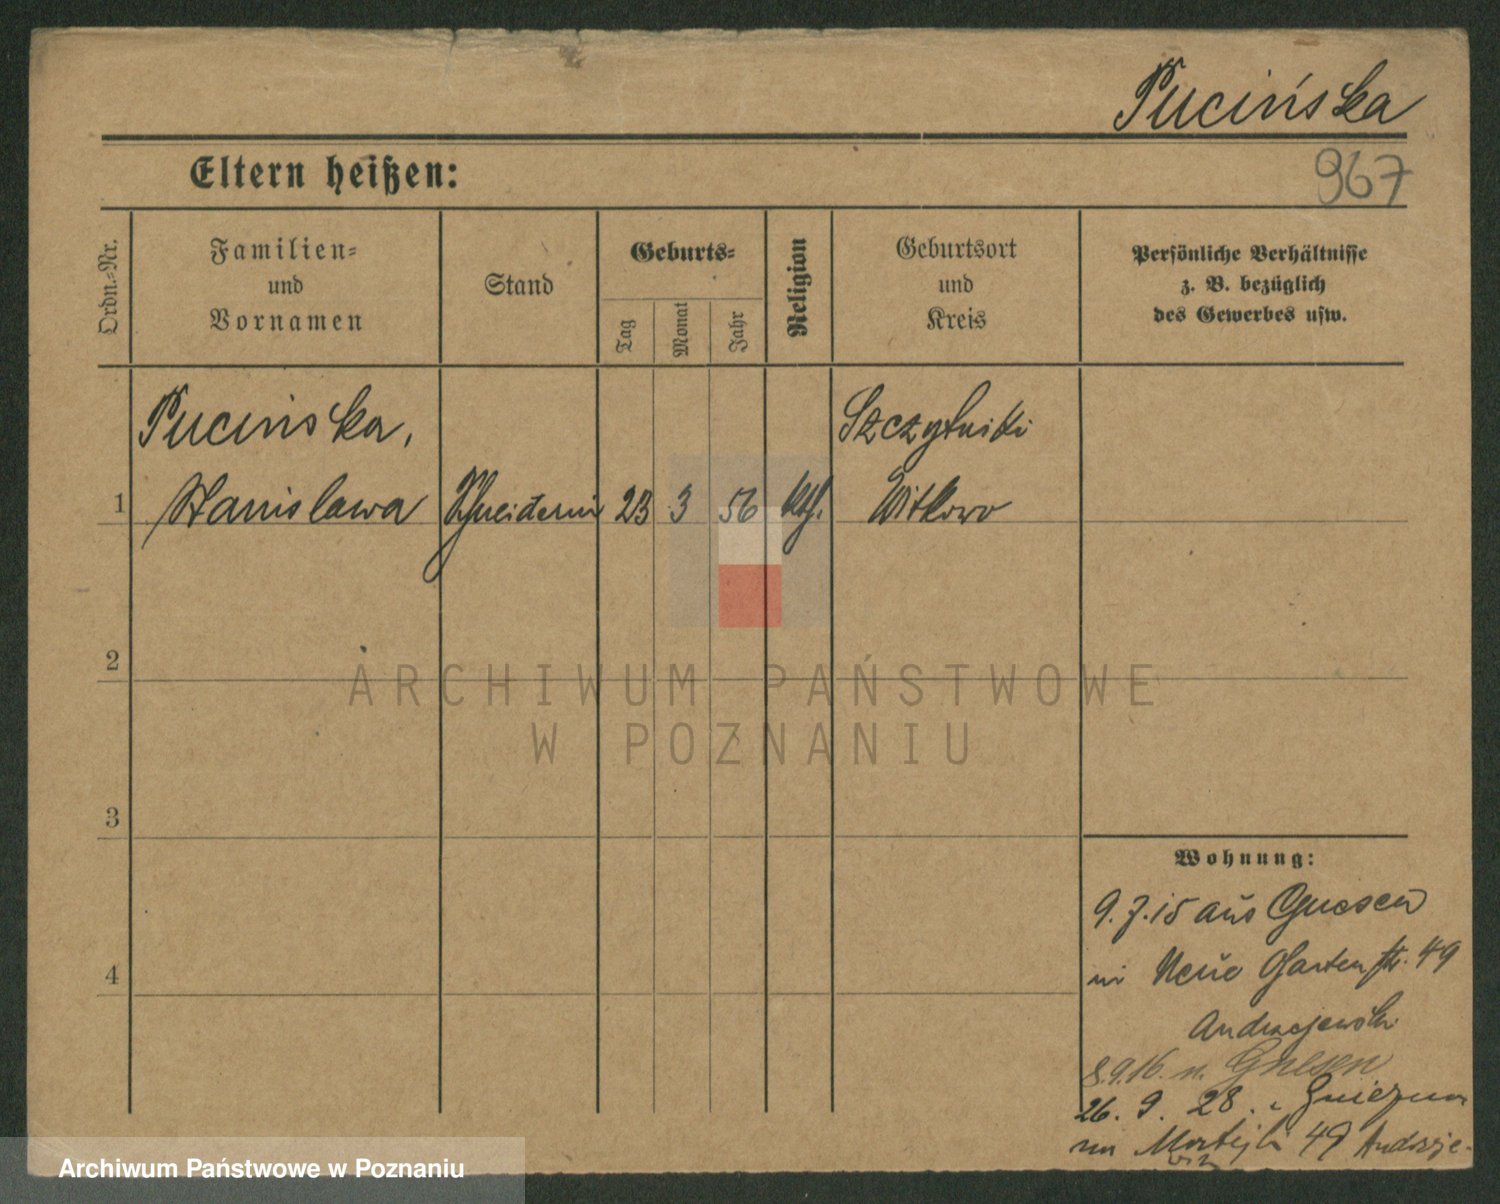 Pucińska
967
Eltern heißen:
Ordn.-Nr.
Familien-
und
Vornamen
Stand
Geburts-
Tag
Monat
Jahr
Religion
Geburtsort
und
Kreis
Persönliche Verhältnisse
z. B. bezüglich
des Gewerbes usw.
Pucińska,
Szczytniki
1 Stanislawa Schneiderin 23 3 56 kth. Witkowo
2
3
4
Wohnung:
9.7.15 aus Gnesen
in Neue Gartenstr. 49
Andrzejewski
8.9.16. n. Gnesen
26. 9. 28. Gniezna
49 Andrzje-
ARCHIWUM PAŃSTWOWE
W POZNANIU
Archiwum Państwowe w Poznaniu